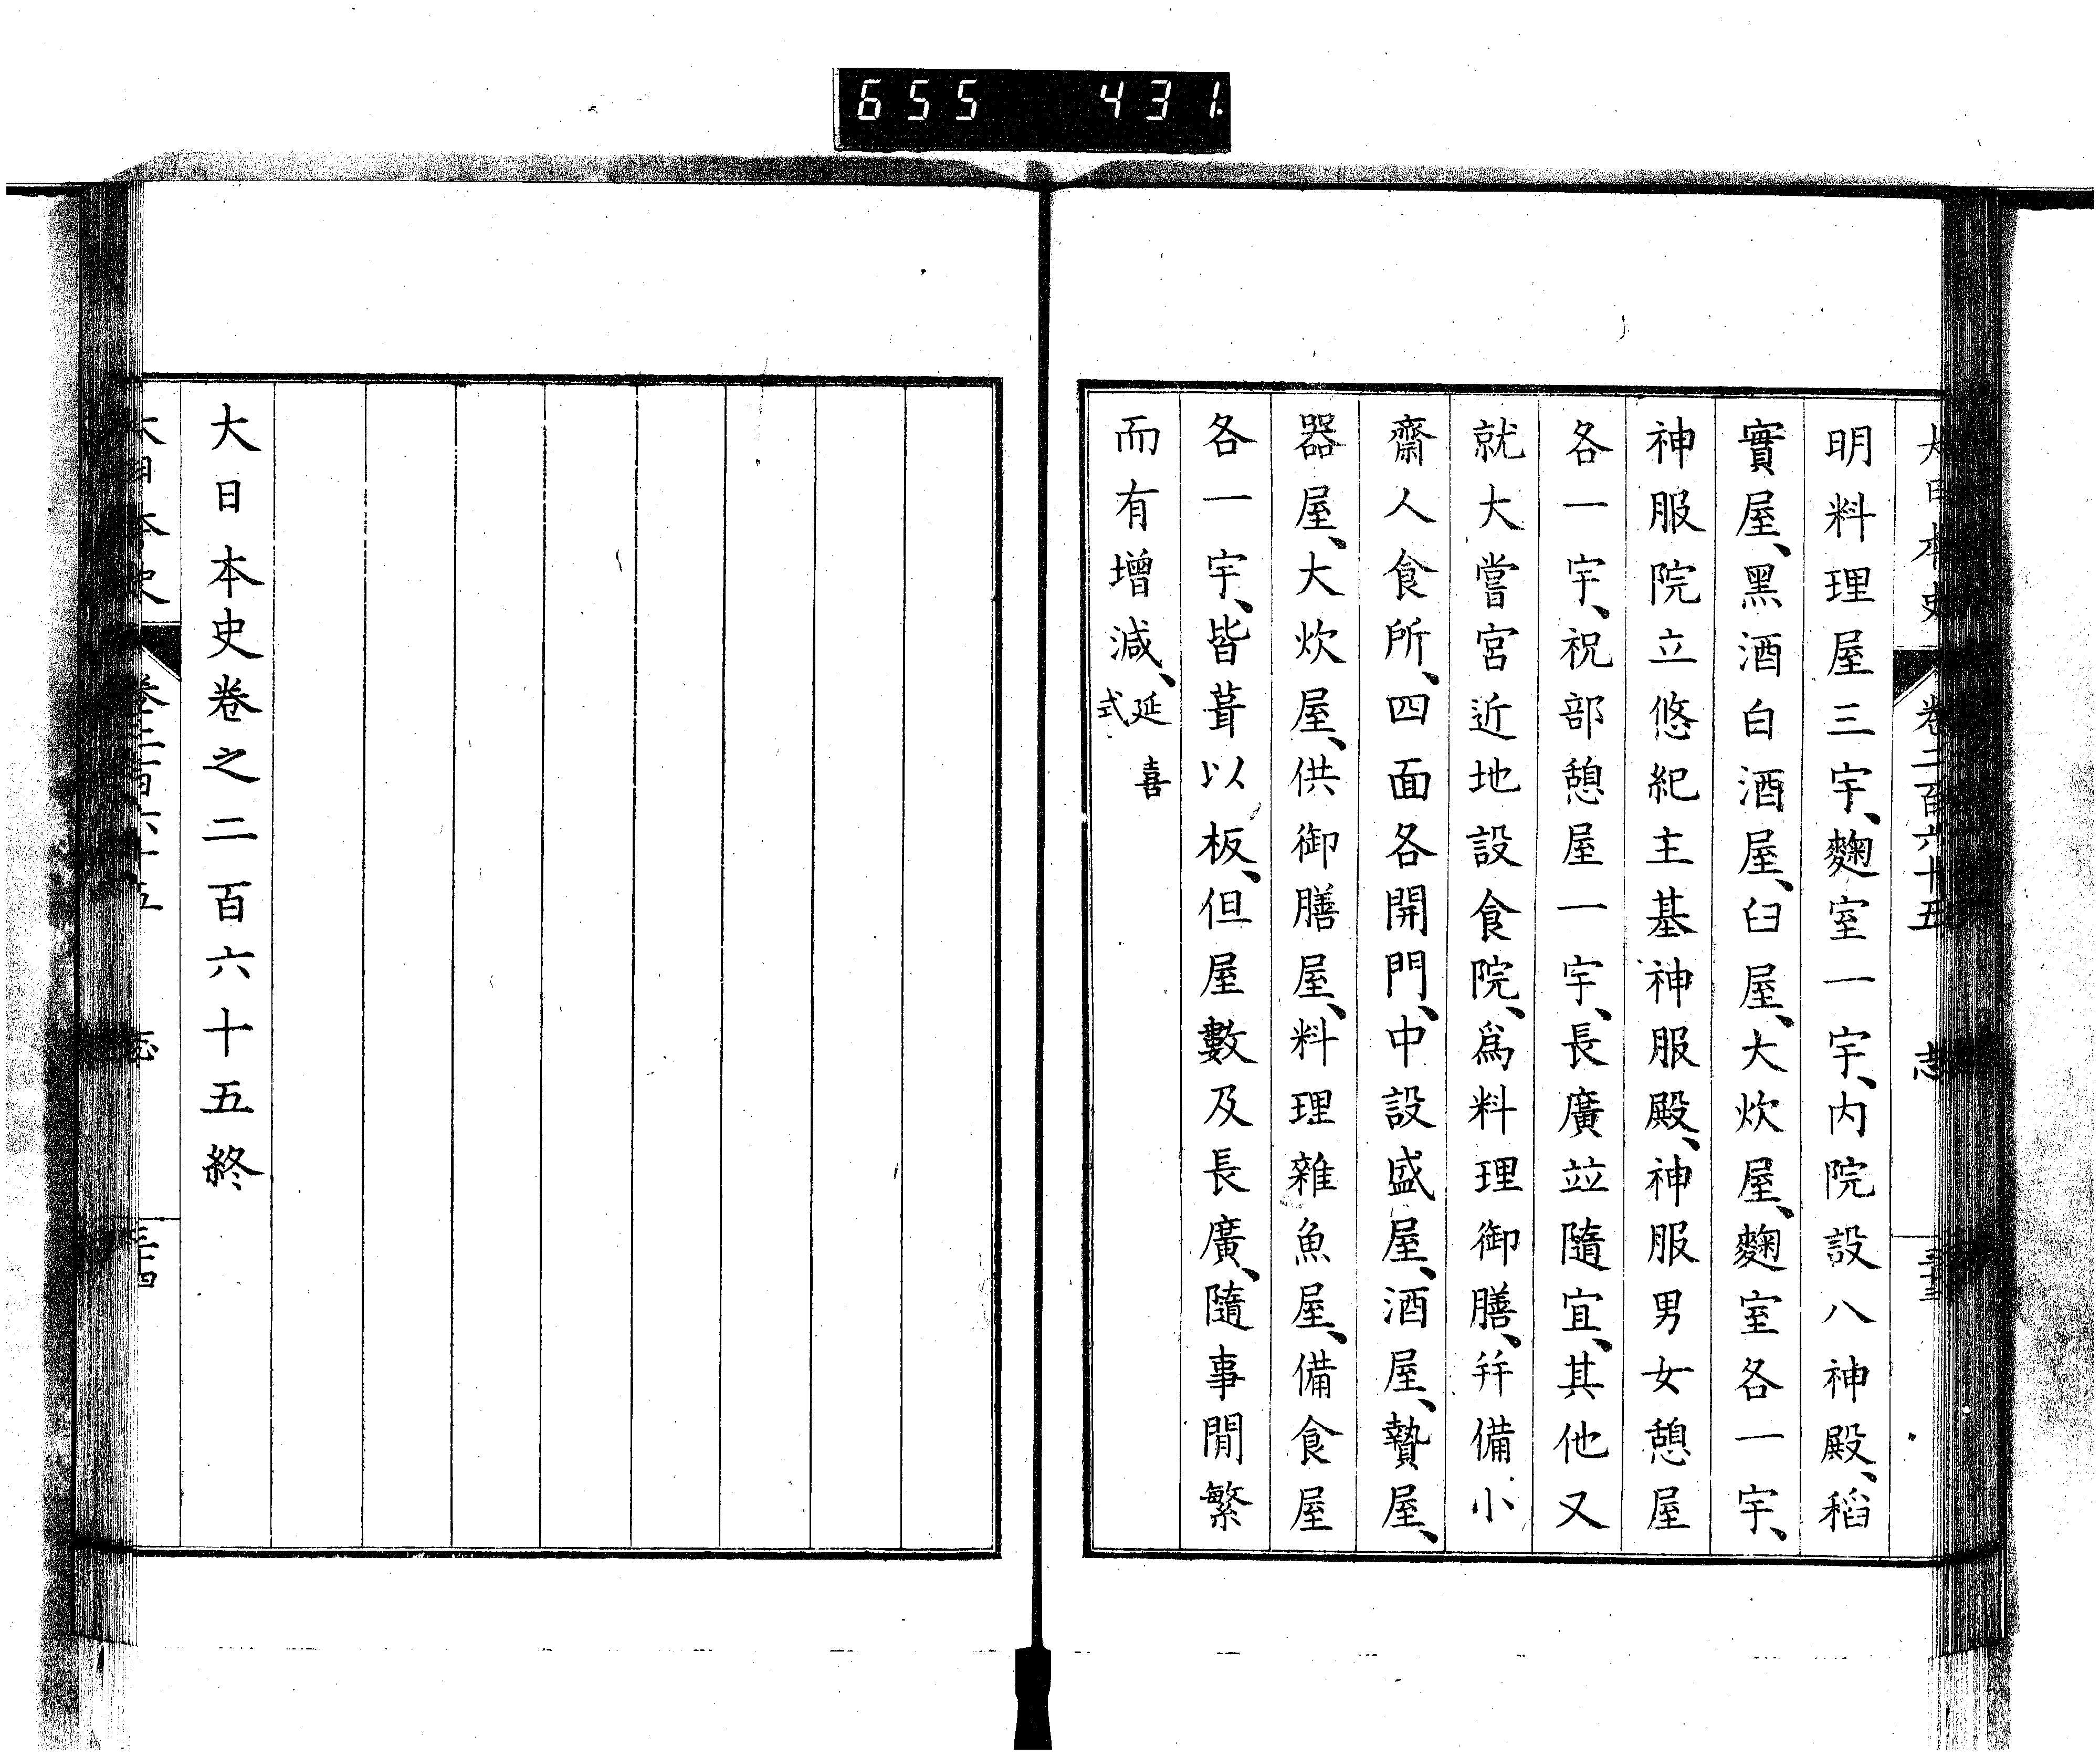 655 431
大日本史 卷二百六十五 志
明料理屋三宇、麴室一宇、内院設八神殿、稻
實屋、黑酒白酒屋、臼屋、大炊屋、麴室各一宇、
神服院立悠紀主基神服殿、神服男女憩屋
各一宇、祝部憩屋一宇、長廣竝隨宜、其他又
就大嘗宮近地設食院、爲料理御膳、幷備小
齋人食所、四面各開門、中設盛屋、酒屋、贄屋、
器屋、大炊屋、供御膳屋、料理雜魚屋、備食屋
各一宇、皆葺以板、但屋數及長廣、隨事閒繁
而有增減、延喜式
大日本史卷之二百六十五終
大日本史 卷二百六十五 志 三十四